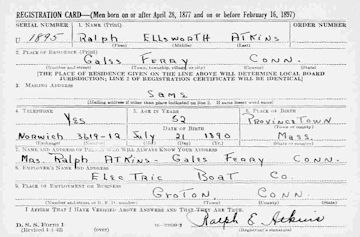 REGISTRATION CARD—(Men born on or after April 28, 1877 and on or before February 16, 1897)
SERIAL NUMBER 1. NAME (Print) ORDER NUMBER
U 1895 Ralph Ellsworth Atkins
(First) (Middle) (Last)
2. PLACE OF RESIDENCE (Print)
Gales Ferry Conn.
(Number and street) (Town, township, village, or city) (County) (State)
[THE PLACE OF RESIDENCE GIVEN ON THE LINE ABOVE WILL DETERMINE LOCAL BOARD
JURISDICTION; LINE 2 OF REGISTRATION CERTIFICATE WILL BE IDENTICAL]
3. MAILING ADDRESS
Same
[Mailing address if other than place indicated on line 2. If same insert word same]
4. TELEPHONE 5. AGE IN YEARS 6. PLACE OF BIRTH
Yes 52 Provincetown
DATE OF BIRTH (Town or county)
Norwich 3619-12 July 21 1890 Mass.
(Exchange) (Number) (Mo.) (Day) (Yr.) (State or country)
7. NAME AND ADDRESS OF PERSON WHO WILL ALWAYS KNOW YOUR ADDRESS
Mrs. Ralph Atkins- Gales Ferry Conn.
8. EMPLOYER'S NAME AND ADDRESS
Electric Boat Co.
9. PLACE OF EMPLOYMENT OR BUSINESS
Groton, Conn.
(Number and street or R. F. D. number) (Town) (County) (State)
I AFFIRM THAT I HAVE VERIFIED ABOVE ANSWERS AND THAT THEY ARE TRUE.
Ralph E Atkins
D. S. S. Form 1
(Revised 4-1-42) (over) (Registrant's signature)